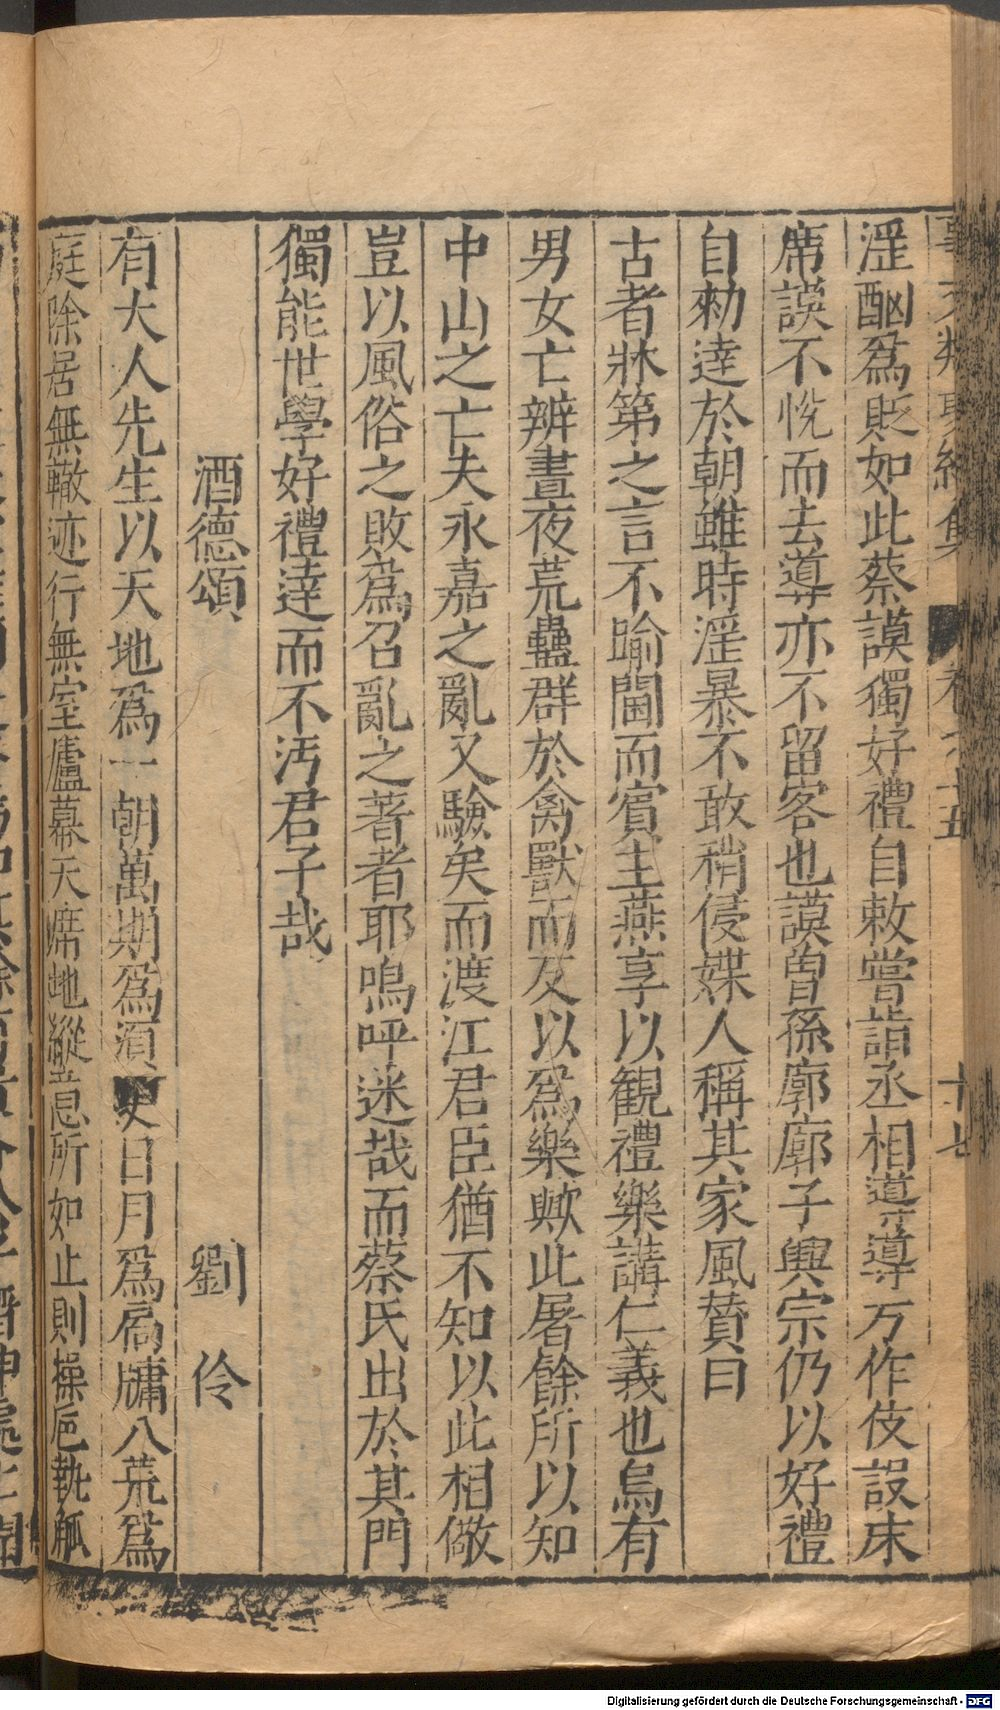 事文類聚續集 卷之十五 十七
淫酗爲貶如此蔡謨獨好禮自敕嘗詣丞相導導方作伎設床
席謨不悅而去導亦不留客也謨曽孫廓廓子興宗仍以好禮
自勑逹於朝雖時淫暴不敢稍侵媟人稱其家風賛曰
古者牀第之言不踰閫而賔主燕享以観禮樂講仁義也烏有
男女亡辨晝夜荒蠱群於禽獸而反以爲樂歟此屠餘所以知
中山之亡夫永嘉之亂又驗矣而渡江君臣猶不知以此相儆
豈以風俗之敗爲召亂之著者耶嗚呼迷哉而蔡氏出於其門
獨能世學好禮逹而不汚君子哉
酒德頌 劉伶
有大人先生以天地爲一朝萬期爲須臾日月爲扃牗八荒爲
庭除居無轍迹行無室廬幕天席地縱意所如止則操巵執觚
Digitalisierung gefördert durch die Deutsche Forschungsgemeinschaft - DFG